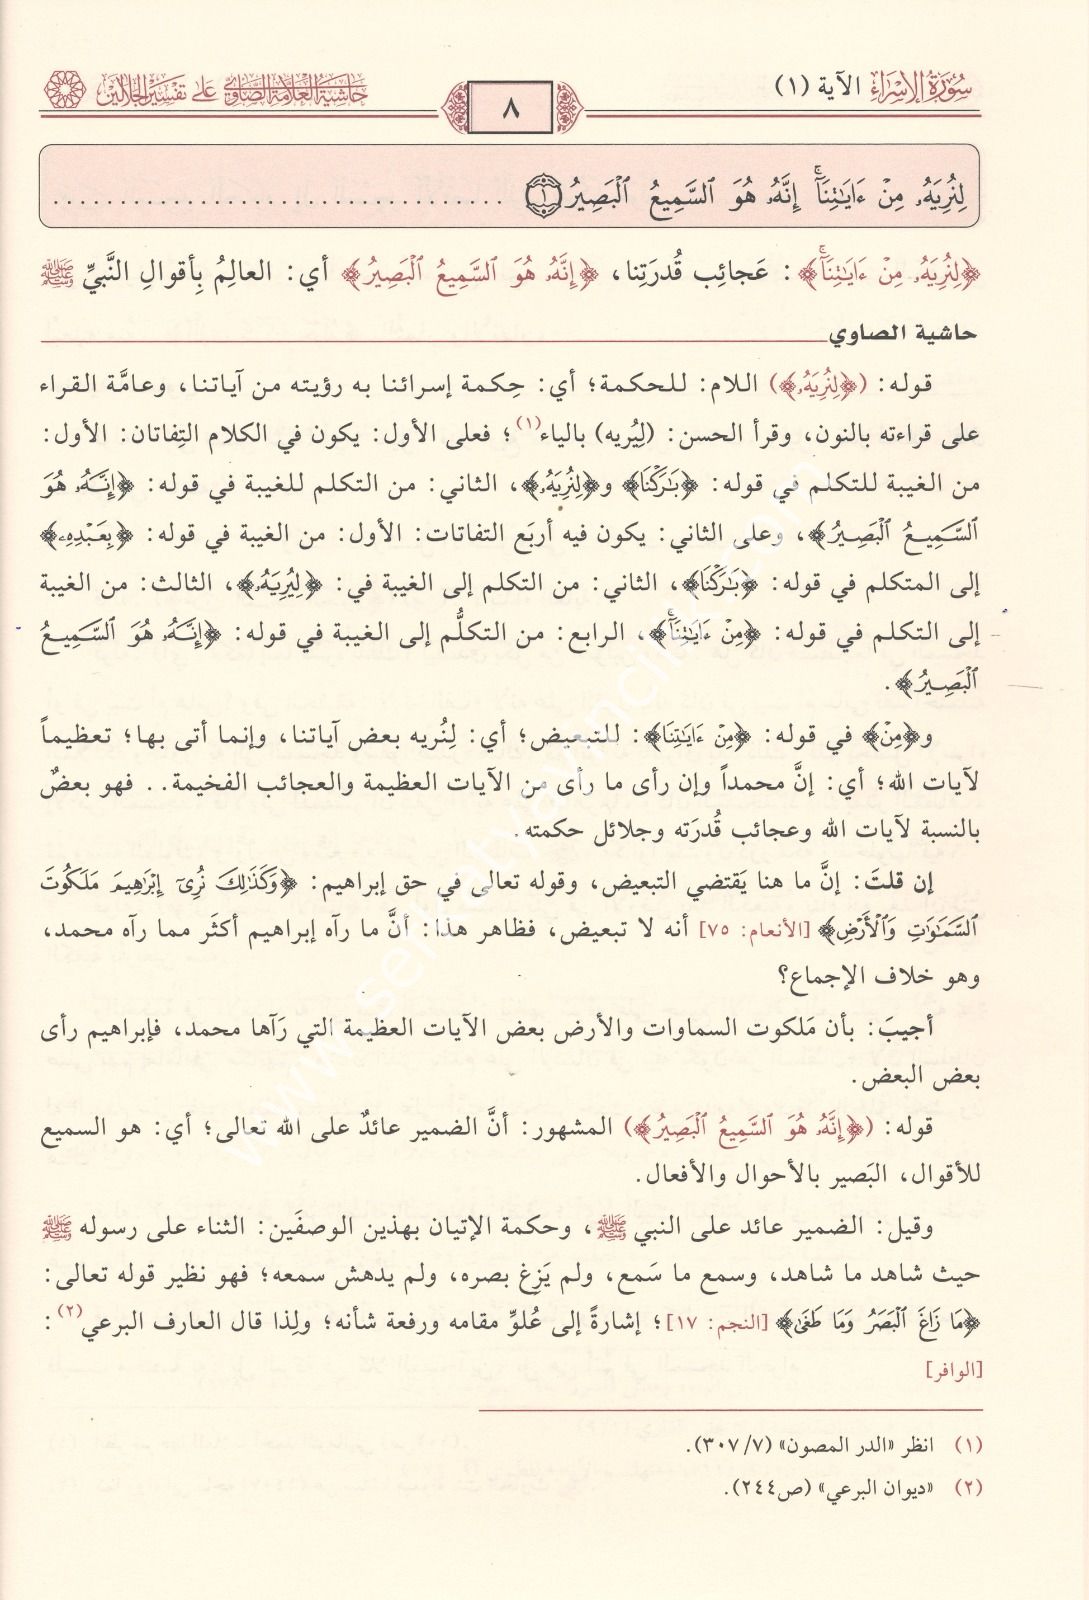 سُورَةُ الإِسْرَاءِ الآية (١)
٨
حاشية العلامة الصاوي على تفسير الجلالين
لِنُرِيَهُۥ مِنْ ءَايَٰتِنَآۚ إِنَّهُۥ هُوَ ٱلسَّمِيعُ ٱلْبَصِيرُ ١ ..................................
﴿لِنُرِيَهُۥ مِنْ ءَايَٰتِنَآۚ﴾: عَجائِب قُدرَتِنا، ﴿إِنَّهُۥ هُوَ ٱلسَّمِيعُ ٱلْبَصِيرُ﴾ أي: العالِمُ بِأقوالِ النَّبيِّ ﷺ
حاشية الصاوي
قوله: (﴿لِنُرِيَهُۥ﴾) اللام: للحكمة؛ أي: حِكمة إسرائنا به رؤيته من آياتنا، وعامَّة القراء
على قراءته بالنون، وقرأ الحسن: (لِيُريه) بالياء(١)؛ فعلى الأول: يكون في الكلام التِفاتان: الأول:
من الغيبة للتكلم في قوله: ﴿بَٰرَكْنَا﴾ و﴿لِنُرِيَهُۥ﴾، الثاني: من التكلم للغيبة في قوله: ﴿إِنَّهُۥ هُوَ
ٱلسَّمِيعُ ٱلْبَصِيرُ﴾، وعلى الثاني: يكون فيه أربَع التفاتات: الأول: من الغيبة في قوله: ﴿بِعَبْدِهِۦ﴾
إلى المتكلم في قوله: ﴿بَٰرَكْنَا﴾، الثاني: من التكلم إلى الغيبة في: ﴿لِيُرِيَهُۥ﴾، الثالث: من الغيبة
إلى التكلم في قوله: ﴿مِنْ ءَايَٰتِنَآۚ﴾، الرابع: من التكلُّم إلى الغيبة في قوله: ﴿إِنَّهُۥ هُوَ ٱلسَّمِيعُ
ٱلْبَصِيرُ﴾.
و﴿مِنْ﴾ في قوله: ﴿مِنْ ءَايَٰتِنَا﴾: للتبعيض؛ أي: لِنُريه بعض آياتنا، وإنما أتى بها؛ تعظيماً
لآيات الله؛ أي: إنَّ محمداً وإن رأى ما رأى من الآيات العظيمة والعجائب الفخيمة.. فهو بعضٌ
بالنسبة لآيات الله وعجائب قُدرَته وجلائل حكمته.
إن قلتَ: إنَّ ما هنا يَقتضي التبعيض، وقوله تعالى في حق إبراهيم: ﴿وَكَذَٰلِكَ نُرِىٓ إِبْرَٰهِيمَ مَلَكُوتَ
ٱلسَّمَٰوَٰتِ وَٱلْأَرْضِ﴾ [الأنعام: ٧٥] أنه لا تبعيض، فظاهر هذا: أنَّ ما رآه إبراهيم أكثَر مما رآه محمد،
وهو خلاف الإجماع؟
أجيبَ: بأن مَلكوت السماوات والأرض بعض الآيات العظيمة التي رَآها محمد، فإبراهيم رأى
بعض البعض.
قوله: (﴿إِنَّهُۥ هُوَ ٱلسَّمِيعُ ٱلْبَصِيرُ﴾) المشهور: أنَّ الضمير عائدٌ على الله تعالى؛ أي: هو السميع
للأقوال، البَصير بالأحوال والأفعال.
وقيل: الضمير عائد على النبي ﷺ، وحكمة الإتيان بهذين الوصفَين: الثناء على رسوله ﷺ
حيث شاهد ما شاهد، وسمع ما سَمع، ولم يَزِغ بصره، ولم يدهش سمعه؛ فهو نظير قوله تعالى:
﴿مَا زَاغَ ٱلْبَصَرُ وَمَا طَغَىٰ﴾ [النجم: ١٧]؛ إشارةً إلى عُلوِّ مقامه ورفعة شأنه؛ ولِذا قال العارف البرعي(٢):
[الوافر]
(١) انظر «الدر المصون» (٣٠٧/٧).
(٢) «ديوان البرعي» (ص٢٤٤).